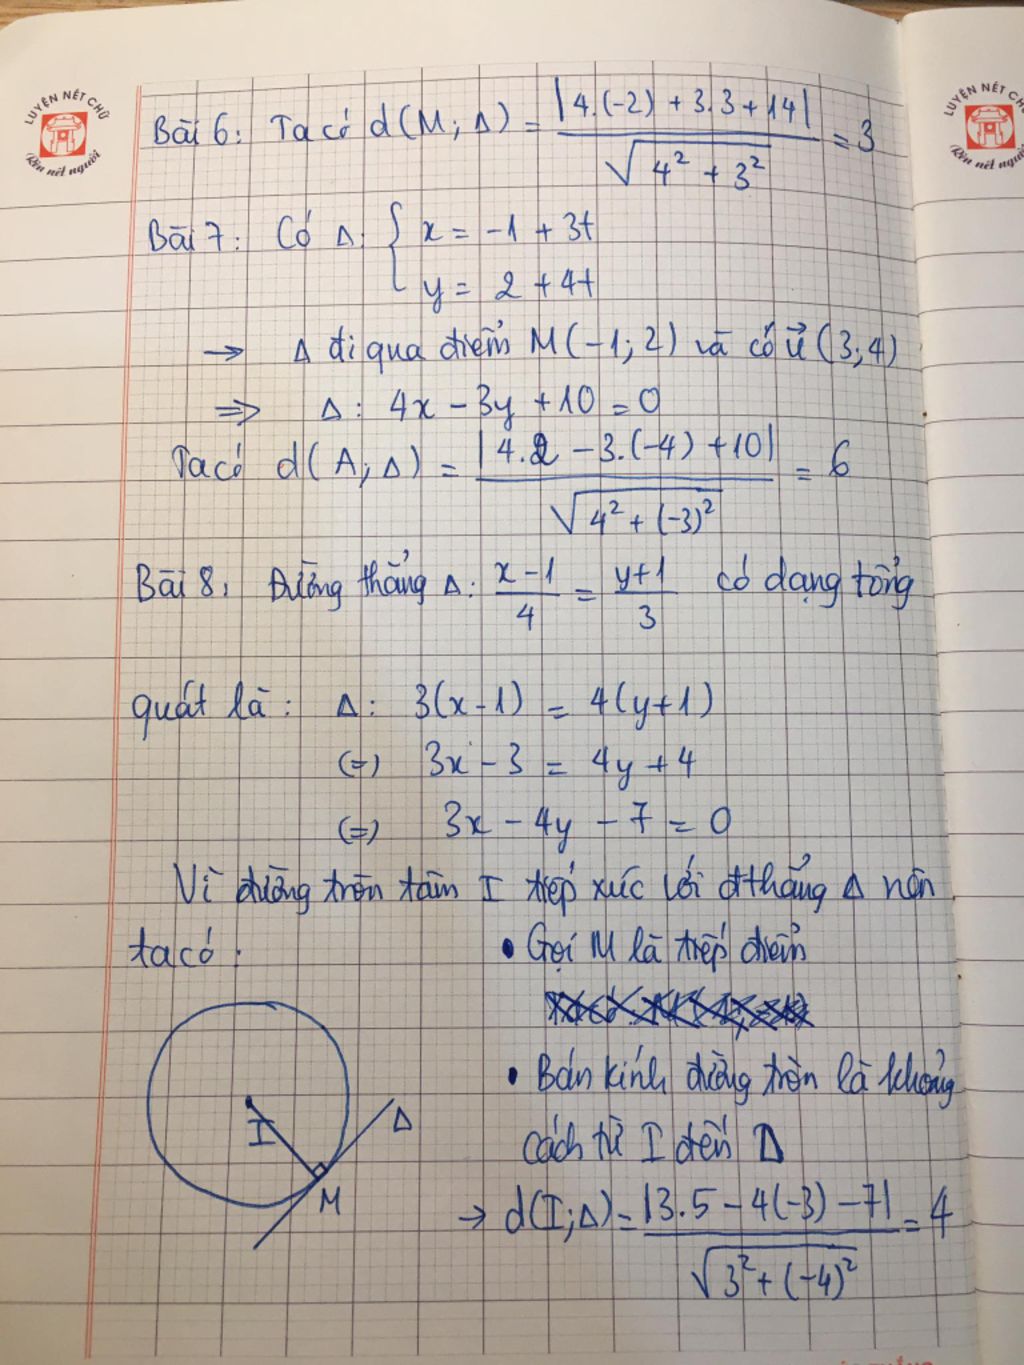 LUYỆN NẾT CHỮ
Rèn nết người
LUYỆN NẾT CHỮ
Rèn nết người
Bài 6: Ta có d(M; Δ) = |4.(-2) + 3.3 + 14| / √(4² + 3²) = 3
Bài 7: Có Δ: { x = -1 + 3t
y = 2 + 4t
→ Δ đi qua điểm M(-1; 2) và có u⃗ (3; 4)
=> Δ: 4x - 3y + 10 = 0
Ta có d(A; Δ) = |4.2 - 3.(-4) + 10| / √(4² + (-3)²) = 6
Bài 8: Đường thẳng Δ: (x - 1)/4 = (y + 1)/3 có dạng tổng
quát là: Δ: 3(x - 1) = 4(y + 1)
(=) 3x - 3 = 4y + 4
(=) 3x - 4y - 7 = 0
Vì đường tròn tâm I tiếp xúc với đthẳng Δ nên
ta có:
• Gọi M là tiếp điểm
• Bán kính đường tròn là khoảng
cách từ I đến Δ
I
Δ
M
→ d(I; Δ) = |3.5 - 4(-3) - 7| / √(3² + (-4)²) = 4